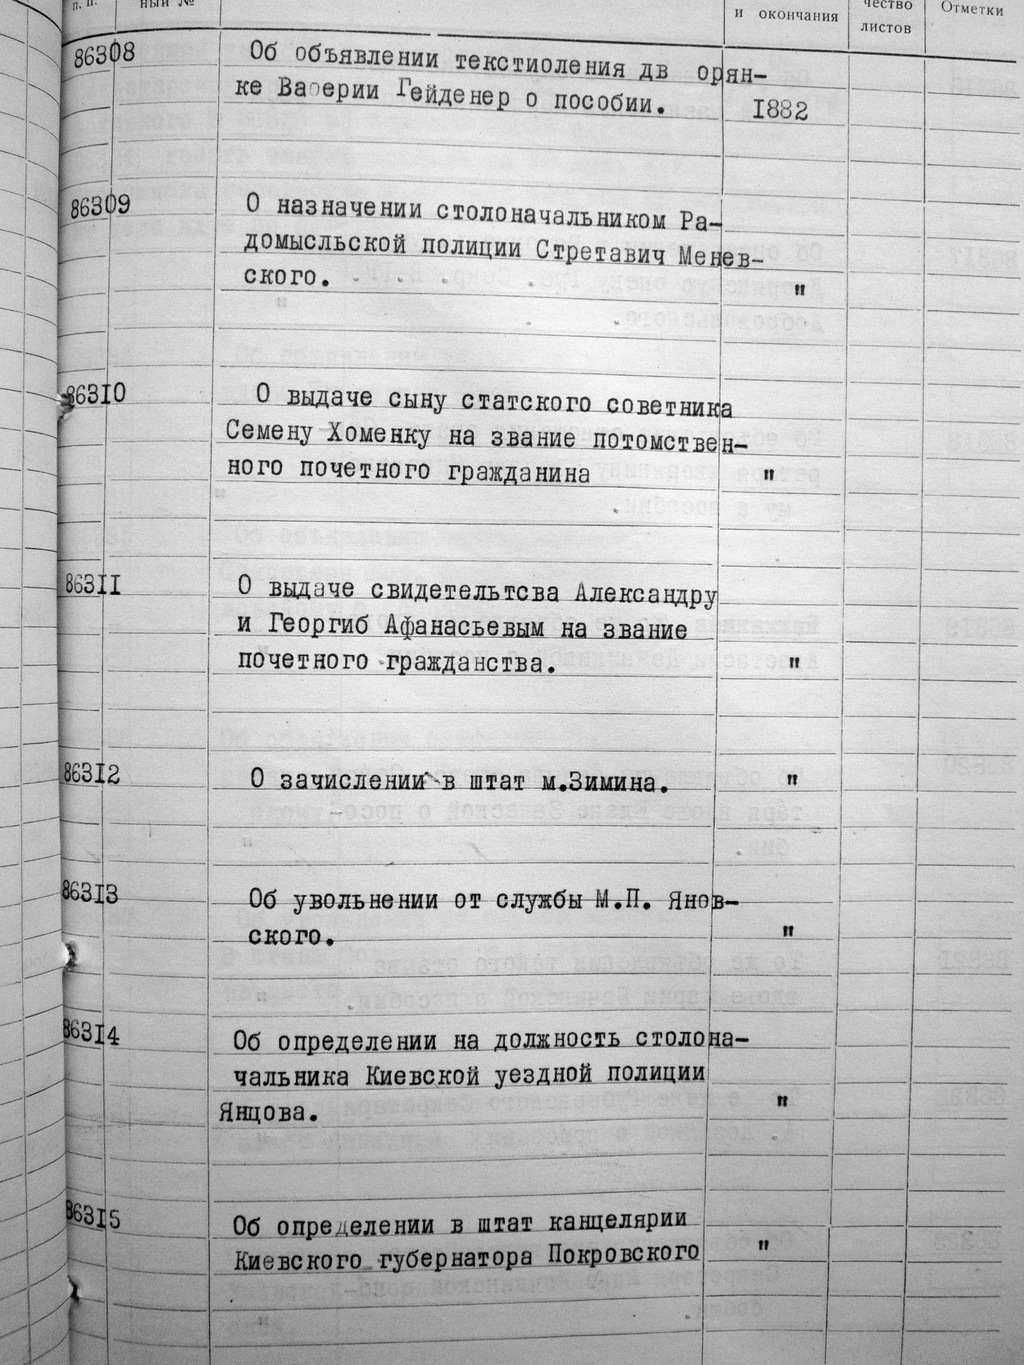 п. п.
ный №
и окончания
чество
листов
Отметки
86308
Об объявлении текстиоления дв орян-
ке Ваоерии Гейденер о пособии.
1882
86309
О назначении столоначальником Ра-
домысльской полиции Стретавич Менев-
ского.
"
86310
О выдаче сыну статского советника
Семену Хоменку на звание потомствен-
ного почетного гражданина
"
86311
О выдаче свидетельтсва Александру
и Георгиб Афанасьевым на звание
почетного гражданства.
"
86312
О зачислении в штат м.Зимина.
"
86313
Об увольнении от службы М.П. Янов-
ского.
"
86314
Об определении на должность столона-
чальника Киевской уездной полиции
Янцова.
"
86315
Об определении в штат канцелярии
Киевского губернатора Покровского
"